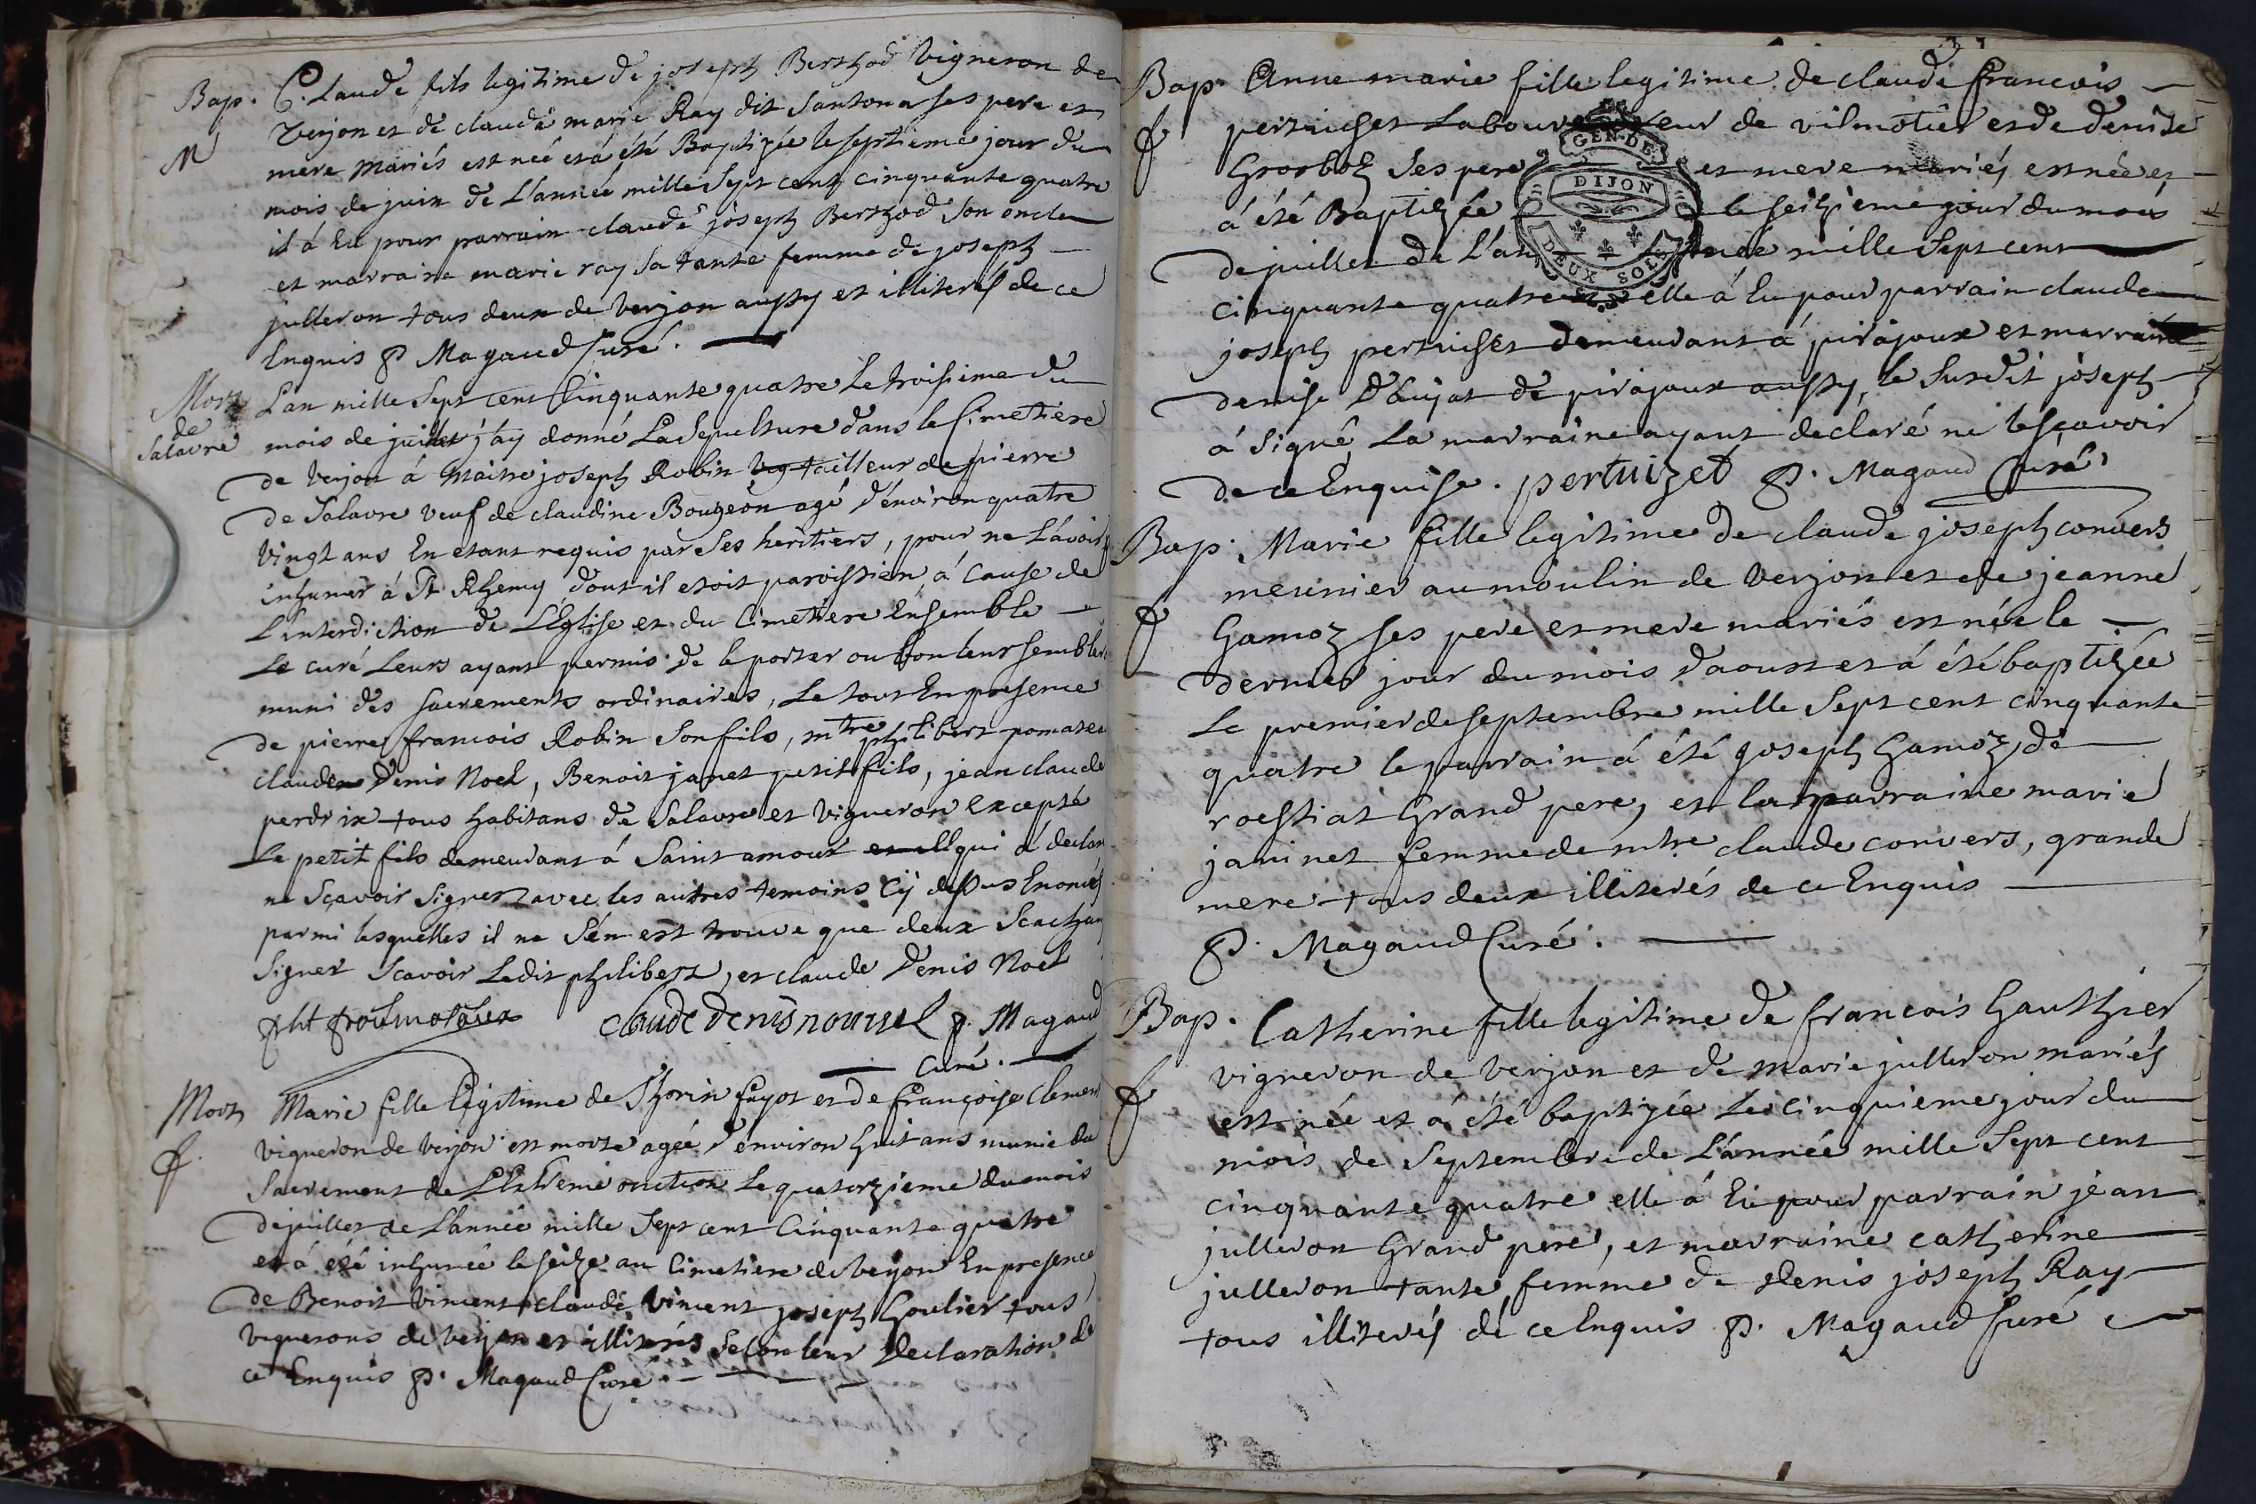 Bap. Claude fils legitime de joseph Berthod vigneron de
M verjon et de claude marie Ray dit Santona ses pere et
mere mariés est née et á été Baptizée le septieme jour du
mois de juin de L'année mille Sept cent cinquante quatre
il á Eu pour parrain claude joseph Berthod Son oncle
et marraine marie ray sa tante femme de joseph
julleron tous deux de verjon aussy et illiterés de ce
Enquis P. Magaud Curé.
Mort Lan mille Sept cent Cinquante quatre Le troisieme du
de Salavre mois de juillet j'ay donné La Sepulture dans le Cimetiere
de verjon á maitre joseph Robin tailleur de pierre
de Salavre veuf de claudine Bougeon agé d'environ quatre
vingt ans En etant requis par ses heritiers, pour ne L'avoir
inhumer á St Rhemy dont il etoit paroissien, á Cause de
L'interdiction de L'Eglise et du Cimetiere Ensemble
Le curé Leurs ayant permis de le porter ou bon leur semblera
muni des sacrements ordinaires, Le tout En presence
de pierre francois Robin Son fils, mtre philibert pomateu
claude Denis Noel, Benoit janet petit fils, jean claude
perdrix tous habitans de Salavre et vigneron Excepté
Le petit fils demeurant á Saint amour et qui á declar
ne Sçavoir Signer avec les autres temoins cy dessus Enoncés
parmi lesquelles il ne S'en est trouvé que deux Scachan
Signer Scavoir Ledit philibert, et claude Denis Noel
claude denis nouuel P. Magaud
Curé.
Mort Marie fille legitime de Thorin fayot et de françoise Clement
f. vigneron de verjon est morte agée d'environ huit ans munie du
Sacrement de L'Extreme onction le quatorzieme du mois
de juillet de L'année mille Sept cent Cinquante quatre
et á été inhumée le seize au Cimetiere de verjon En presence
de Benoit vincent claude vincent joseph Goulier tous
vignerons de verjon et illiterés selon leur Declaration de
ce Enquis P. Magaud Curé.
Bap. Anne marie fille legitime de claude francois
f pertuiset Laboureur de vilmotier et de denise
Grosboz Ses pere et mere mariés est née et
á été Baptizée le seizieme jour du mois
de juillet de L'année mille Sept cent
cinquante quatre elle á Eu pour parrain claude
joseph pertuiset demeurant á pirajoux et marraine
denise de pirajoux aussy, le Susdit joseph
á Signé, La marraine ayant declaré ne le sçavoir
de ce Enquise. pertuizet P. Magaud Curé
Bap. Marie fille legitime de claude joseph convers
meunier au moulin de verjon et de jeanne
f Gamoz ses pere et mere mariés est née le
dernier jour du mois d'aoust et á été baptizée
Le premier de septembre mille Sept cent cinquante
quatre le parrain á été joseph Gamoz de
roissiat Grand pere, et la marraine marie
janinet femme de mtre claude convers, grande
mere tous deux illiterés de ce Enquis
P. Magaud Curé.
Bap. Catherine fille legitime de francois Gauthier
f vigneron de verjon et de marie julleron mariés
est née et á été baptizée Le cinquieme jour du
mois de Septembre de L'année mille Sept cent
cinquante quatre elle á Eu pour parrain jean
julleron Grand pere, et marraine catherine
julleron tante, femme de denis joseph Ray
tous illiterés de ce Enquis P. Magaud Curé
GEN. DE
DIJON
DEUX SOLS